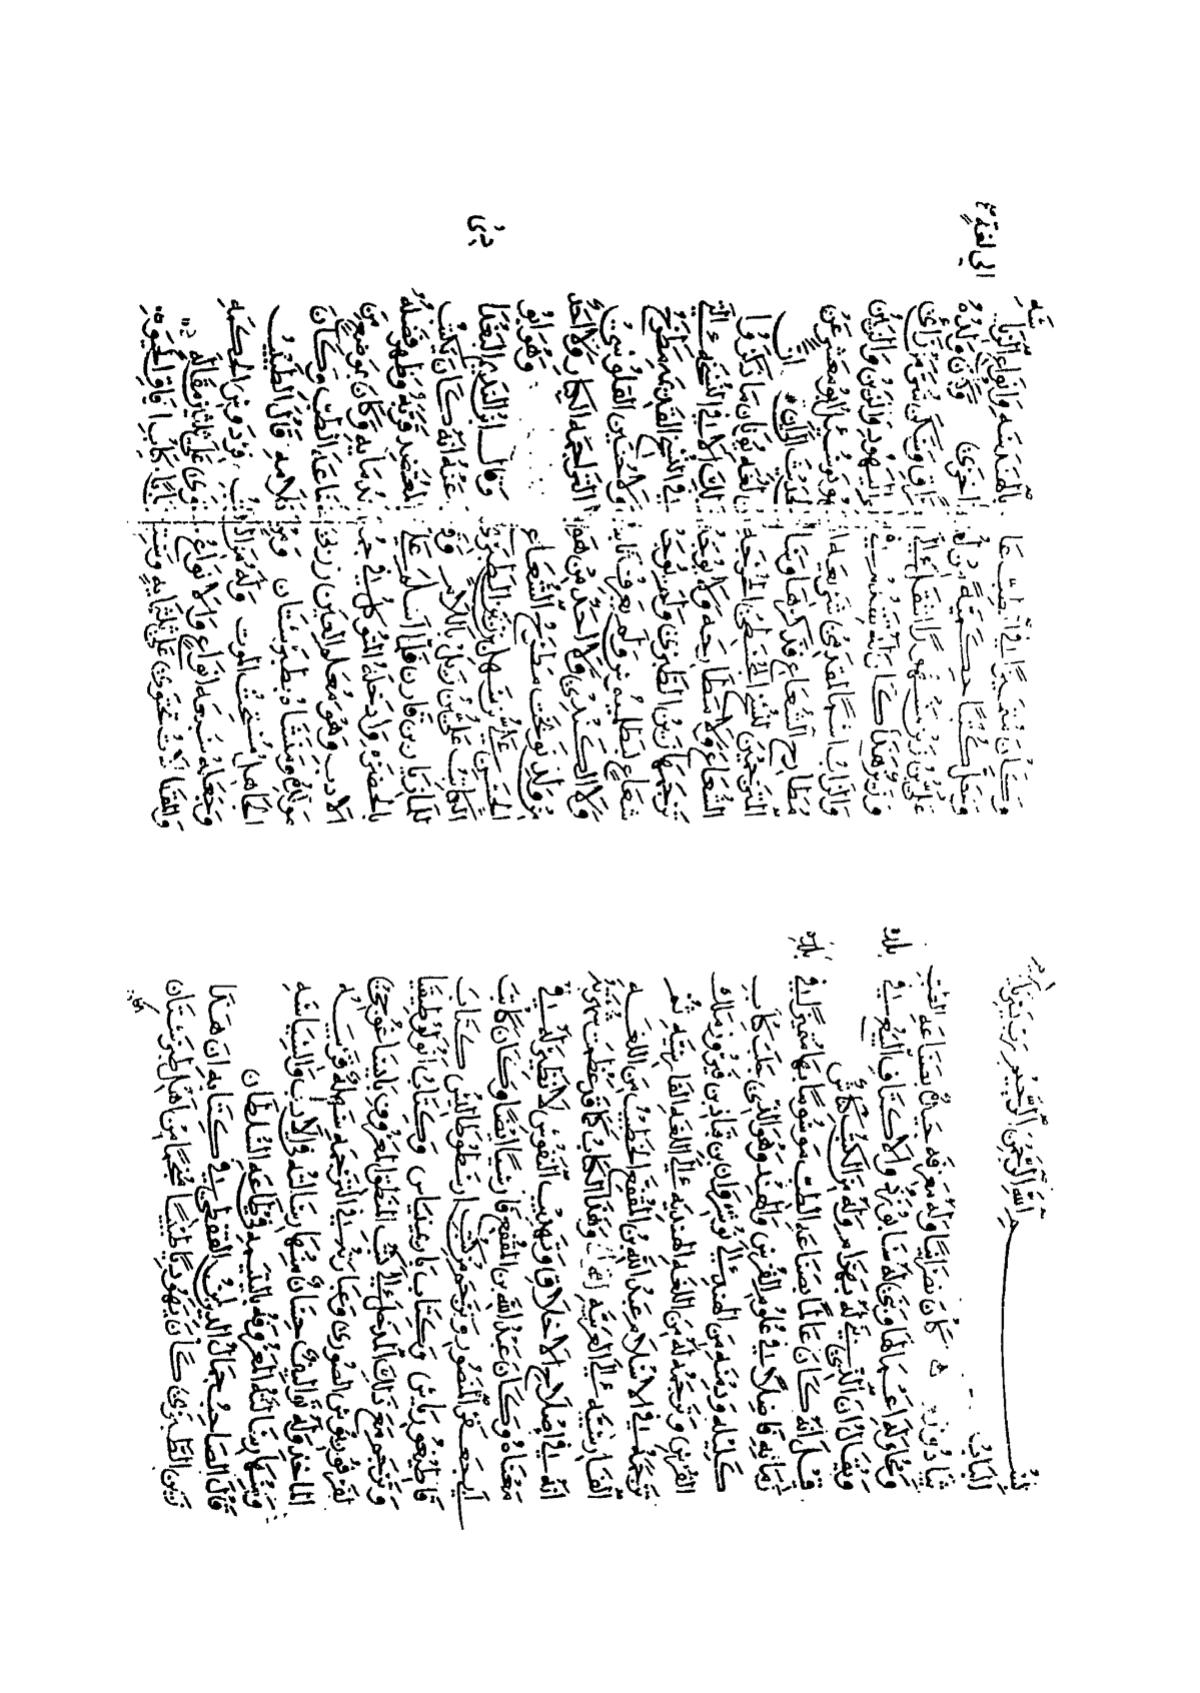 بسم الله الرحمن الرحيم رب يسر
الباب
تيادورس كان نصرانيا وله معرفه جيده بصناعة الطب
ومحاوله لاعمالها وبنى له سابور ذو الاكتاف البيع في بلده
ويقال ان الذي بنى له بهرام وله من الكتب كناش
قيل انه كان عالما بصناعة الطب موسوما بها متميزا في بلده
زمانه فاضلا في علوم الفرس والهند وهو الذي جلب كتاب
كليله ودمنه من الهند الى انوشروان بن قباذ بن فيروز ملك
الفرس وترجمه له من اللغه الهنديه الى اللغه الفارسيه ثم
ترجمه في الاسلام عبد الله بن المقفع الخطيب من اللغه
الفارسيه الى العربيه وهذا الكتاب كما قد عظمت شهرته
انه في اصلاح الاخلاق وتهذيب النفوس لا نظير له في
معناه وكان عبد الله بن المقفع فارسيا ايضا وكان كاتب
ابي جعفر المنصور وترجم من كتب ارسطوطاليس كتاب
قاطيغورياس وكتاب باريمينياس وكتاب انولوطيقا
وترجم مع ذلك المدخل الى كتب المنطق المعروف بايساغوجي
لفرفوريوس الصوري وعبارته في الترجمه سهله قريبه
الماخذ وله تواليف حسان منها رسالته في الادب والسياسه
ومنها رسالته المعروفه باليتيمه في طاعه السلطان
قال الصاحب جمال الدين بن القفطي في كتابه ان هذا
ربن الطبري كان يهوديا طبيبا منجما من اهل طبرستان
وكان متميزا في الطب عالما بالهندسه وانواع الرياضه
وحل كتبا حكميه من لغه الى لغه اخرى وكان ولده
علي بن ربن مشهورا انتقل الى العراق وسكن سر من راى
وربن هذا كان له تقدم في اليهود والربن والربين
والراب اسما لمقدمي شريعه اليهود وسئل ابو معشر عن
مطارح الشعاع فذكرها وساق الحديث الى ان
المترجمين لنسخ المجسطي المخرجه من لغه يونان ما ذكروا
الشعاع ولا مطارحه ولا يوجد ذلك الا في النسخه التي
ترجمها ربن الطبري ولم يوجد في النسخ القديمه مطرح
شعاع بطلميوس ولم يعرفه ثابت ولا حنين القلوسي
ولا الكندي ولا احد من هولا التراجمه الكبار ولا احد
من ولد نوبخت مطرح الشعاع وهو ابو
الحسن علي بن سهل بن ربن الطبري وقال ابن النديم البغدا
دي
الكاتب علي بن ربل باللام وقال عنه انه كان يكتب
للمازيار بن قارن فلما اسلم على يد المعتصم قربه وظهر فضله
بالحضره وادخله المتوكل في جمله ندمايه وكان بموضع من
الادب وهو معلم العين زربي صناعه الطب وكان
مولده ومنشاه بطبرستان ومن كلامه قال الطبيب
الجاهل مستحث الموت وله من الكتب فردوس الحكمه
وجعله سبعه انواع والانواع تحتوي على ثلثين مقاله
والمقالات تحتوي على ثلثمايه وستين بابا كتاب ارفاق الحيوة